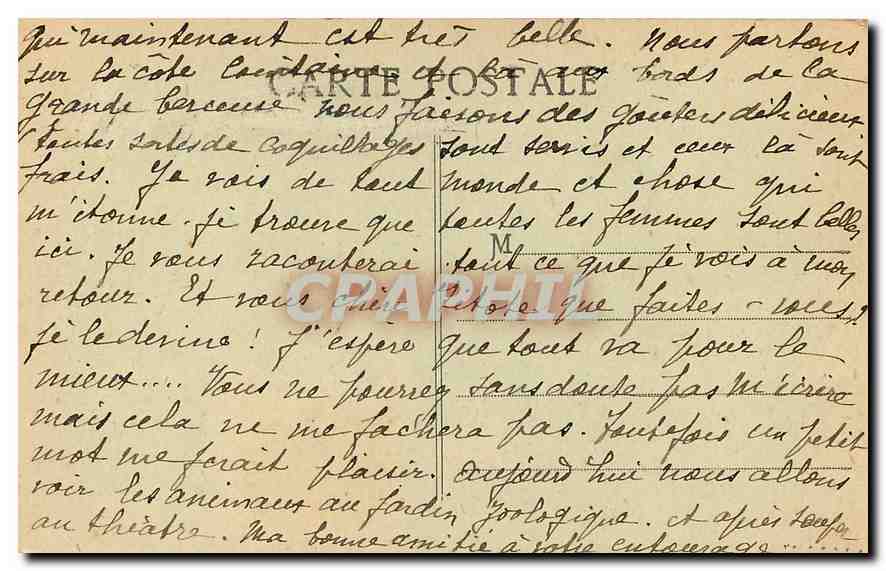 qui maintenant est très belle. Nous partons
sur la côte lointaine et là aux bords de la
CARTE POSTALE
grande berceuse nous faisons des goûters délicieux
(toutes sortes de coquillages sont servis et ceux là sont
frais. Je vois de tout monde et chose qui
m'étonne. je trouve que toutes les femmes sont belles
M
ici. Je vous raconterai tout ce que je vois à mon
retour. Et vous cher que faites-vous?
CPAPHIL
je le devine! J'espère que tout va pour le
mieux.... Vous ne pourrez sans doute pas m'écrire
mais cela ne me fachera pas. Toutefois un petit
mot me ferait plaisir. aujourd'hui nous allons
voir les animaux au Jardin Zoologique. et après souper
au théâtre. Ma bonne amitié à votre entourage........